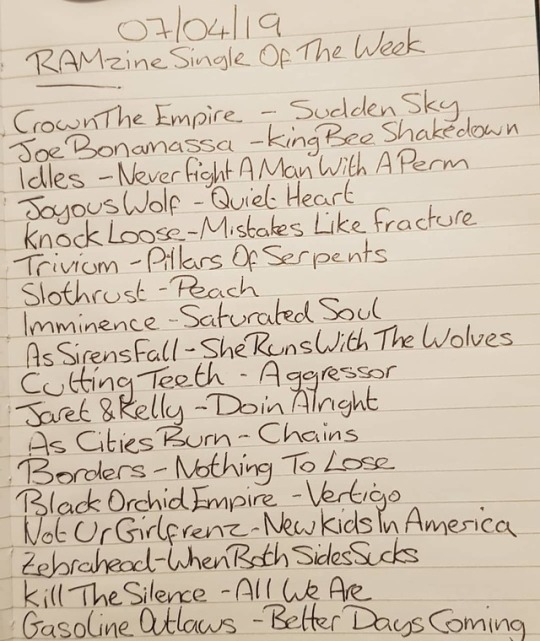 07/04/19
RAMzine Single Of The Week
Crown The Empire - Sudden Sky
Joe Bonamassa - King Bee Shakedown
Idles - Never Fight A Man With A Perm
Joyous Wolf - Quiet Heart
Knock Loose - Mistakes Like Fracture
Trivium - Pillars Of Serpents
Slothrust - Peach
Imminence - Saturated Soul
As Sirens Fall - She Runs With The Wolves
Cutting Teeth - Aggressor
Jaret & Kelly - Doin Alright
As Cities Burn - Chains
Borders - Nothing To Lose
Black Orchid Empire - Vertigo
Not Ur Girlfrenz - New Kids In America
Zebrahead - When Both Sides Sucks
Kill The Silence - All We Are
Gasoline Outlaws - Better Days Coming